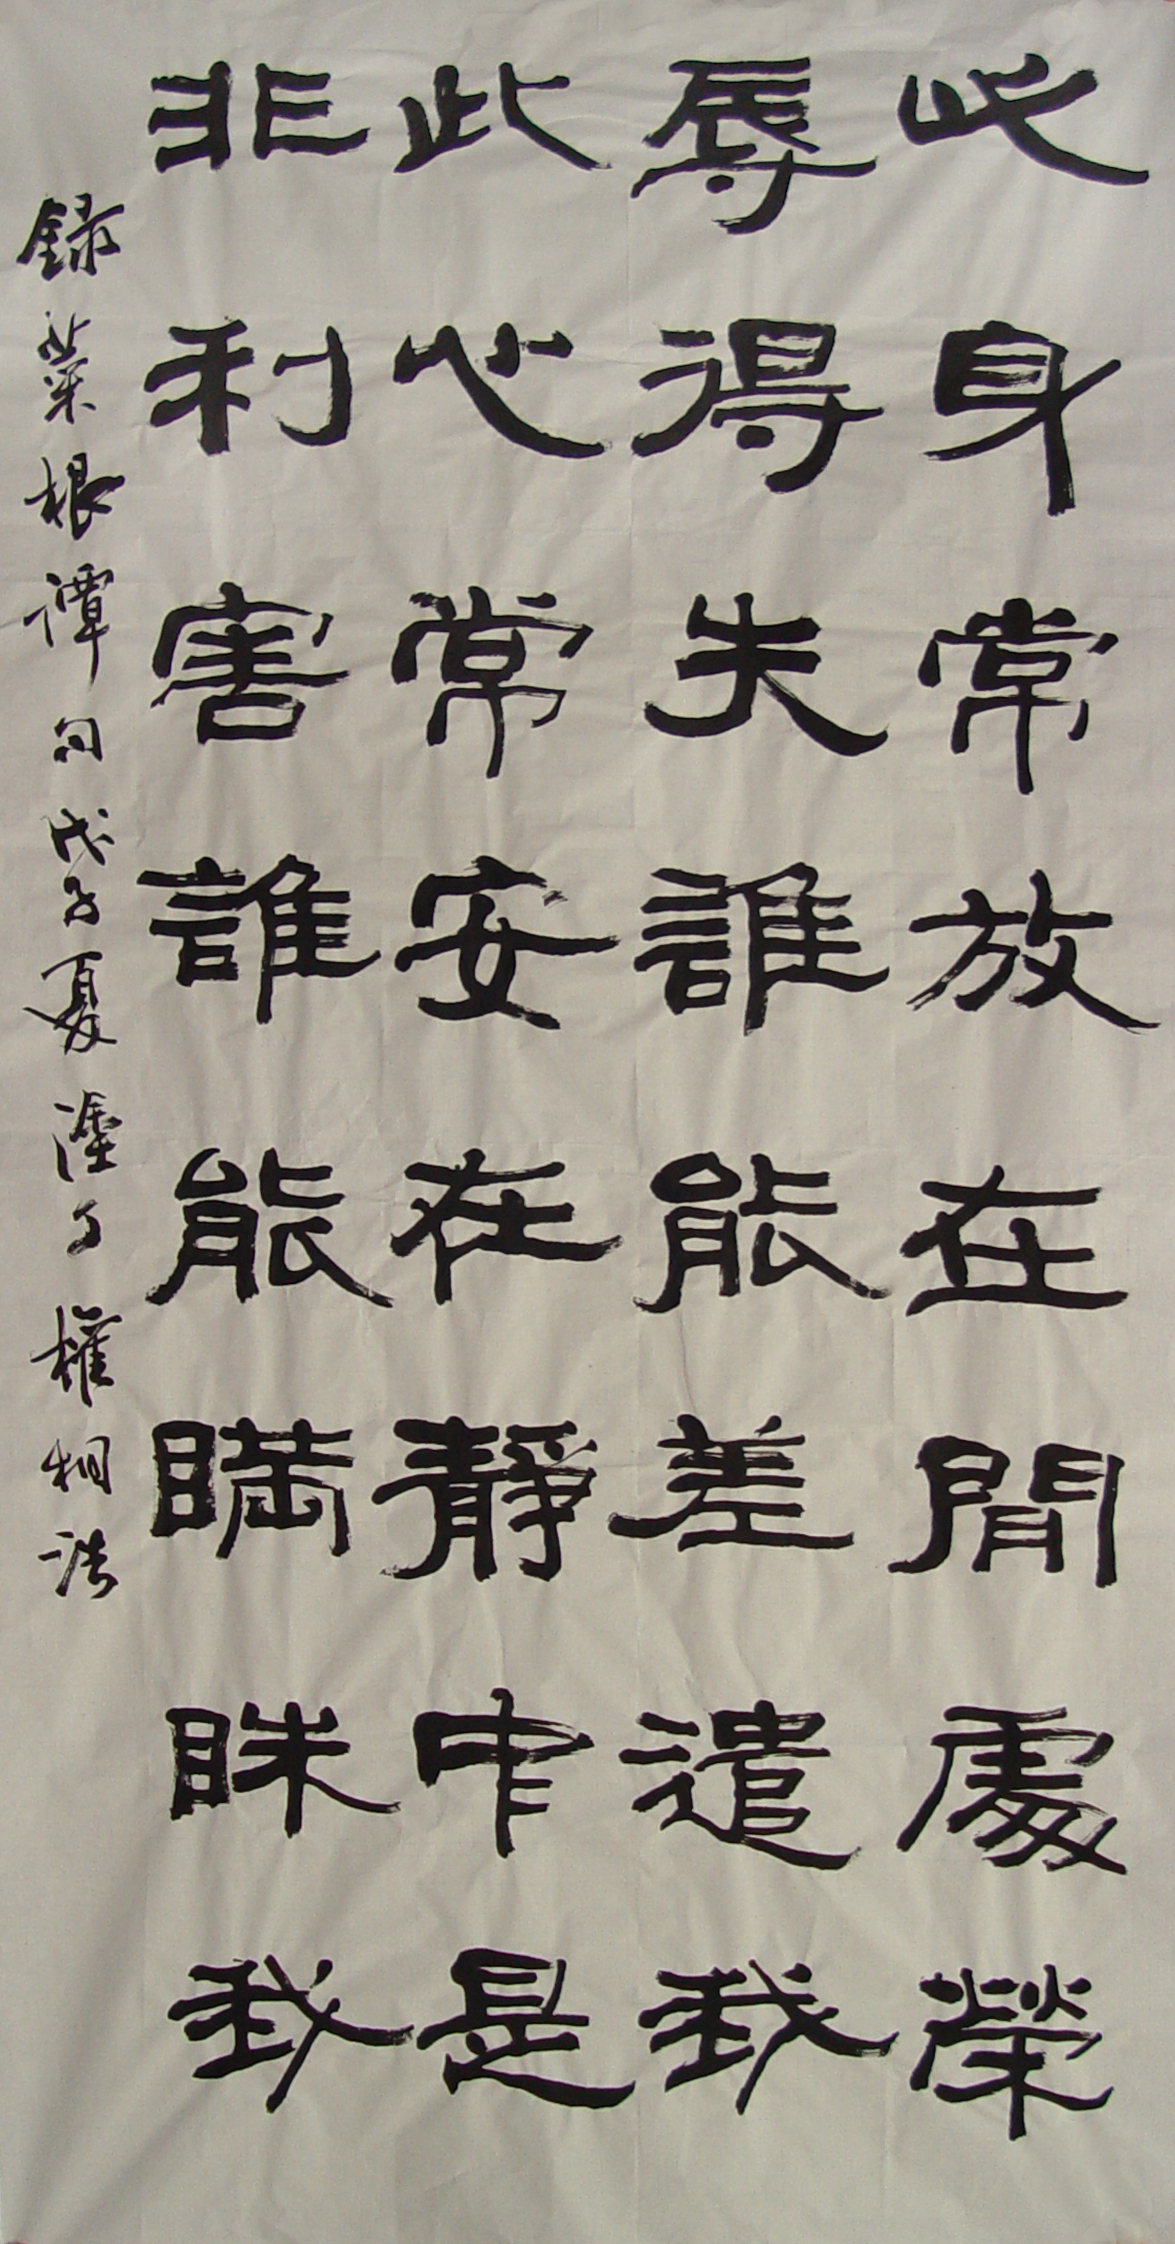 此身常放在閒處榮
辱得失誰能差遣我
此心常安在靜中是
非利害誰能瞞眛我
錄菜根譚句戊子夏 權相浩